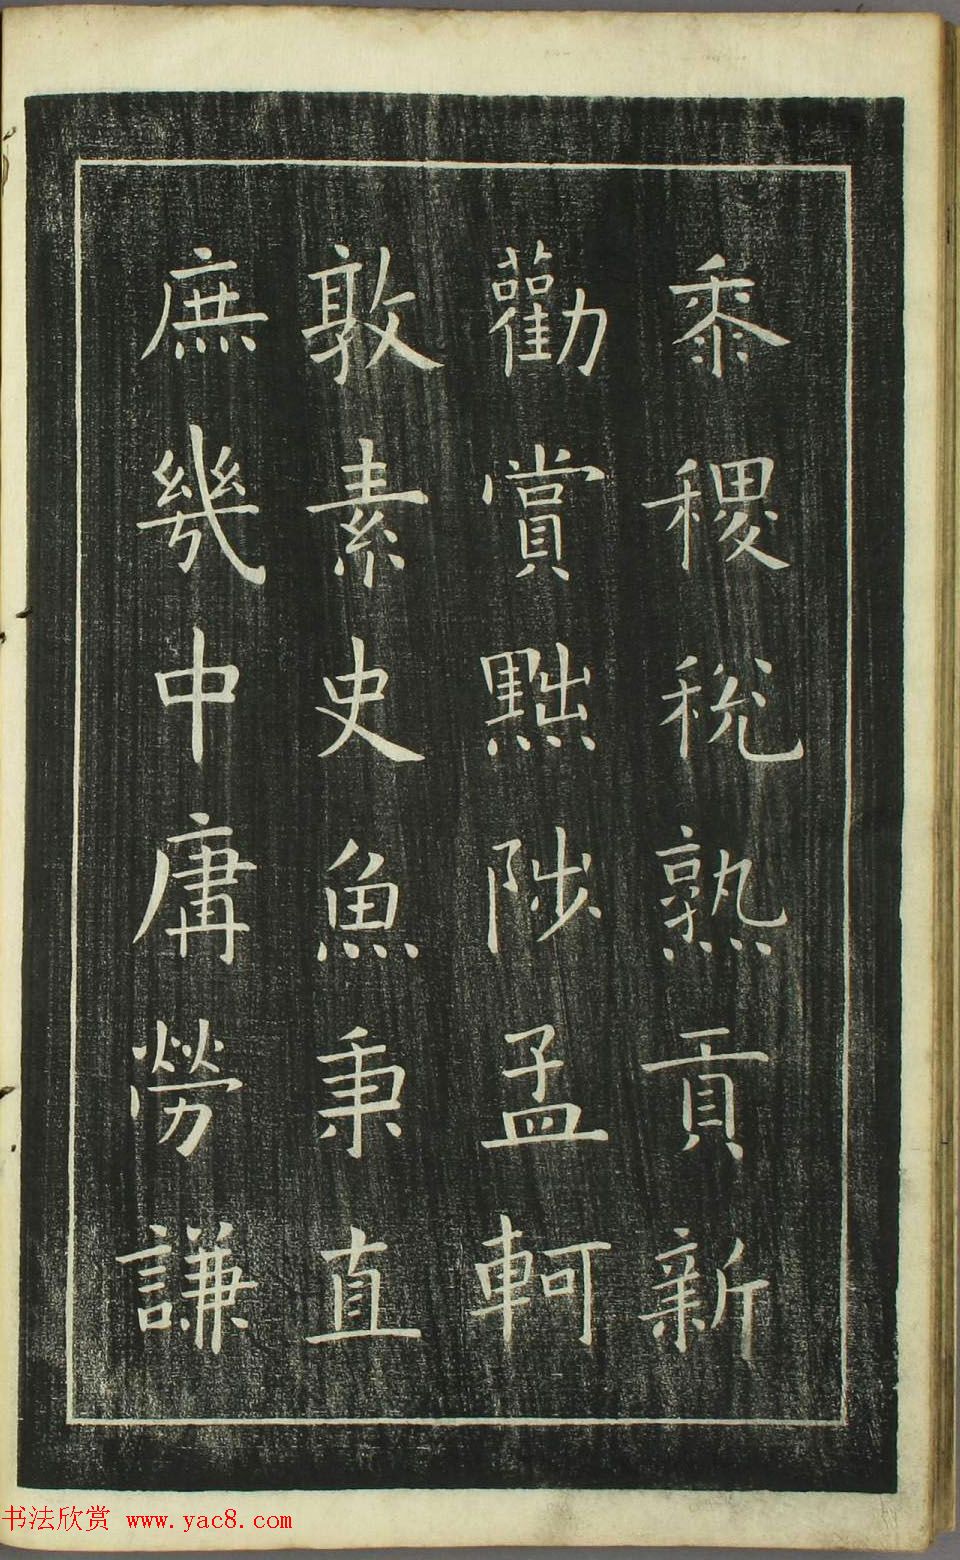 黍稷稅熟貢新
勸賞黜陟孟軻
敦素史魚秉直
庶幾中庸勞謙
书法欣赏 www.yac8.com